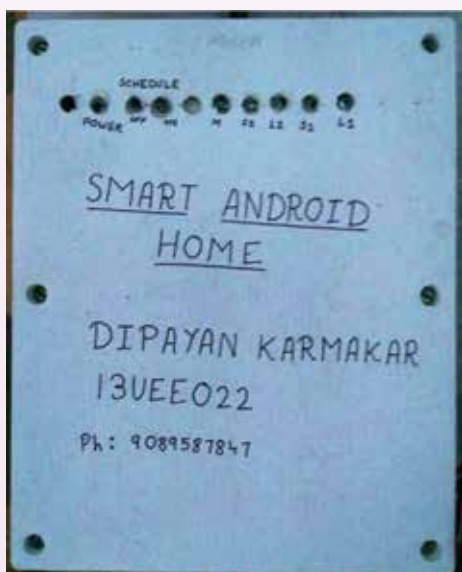 SCHEDULE
POWER OFF ON M S2 L2 S1 L1
SMART ANDROID
HOME
DIPAYAN KARMAKAR
13UEE022
Ph: 9089587847